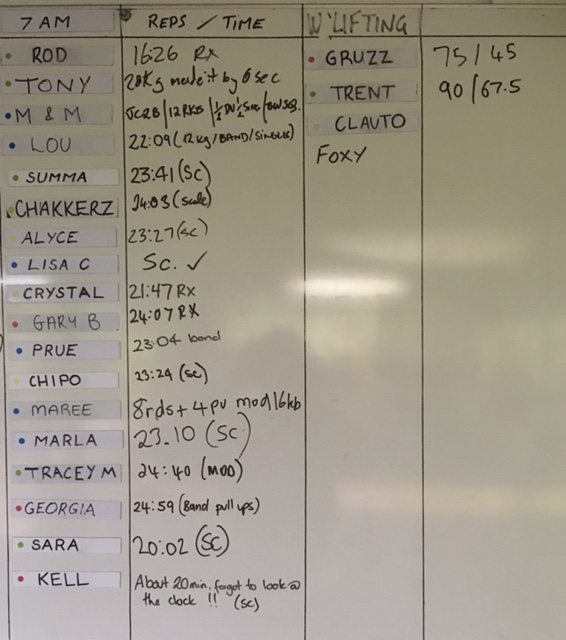 7 AM REPS / TIME W'LIFTING
ROD 16:26 Rx GRUZZ 75 / 45
TONY 28Kg made it by 6 sec TRENT 90 / 67.5
M & M /12RKB / CLAUTO
LOU 22:09 (12kg/BAND/SINGLES) FOXY
SUMMA 23:41 (SC)
CHAKKERZ 24:03 (scale)
ALYCE 23:27 (sc)
LISA C Sc. ✓
CRYSTAL 21:47 RX
GARY B 24:07 RX
PRUE 23:04 band
CHIPO 23:24 (sc)
MAREE 8rds + 4 pu mod 16kb
MARLA 23.10 (SC)
TRACEY M 24:40 (MOD)
GEORGIA 24:59 (Band pull ups)
SARA 20:02 (SC)
KELL About 20min, forgot to look @
the clock !! (sc)